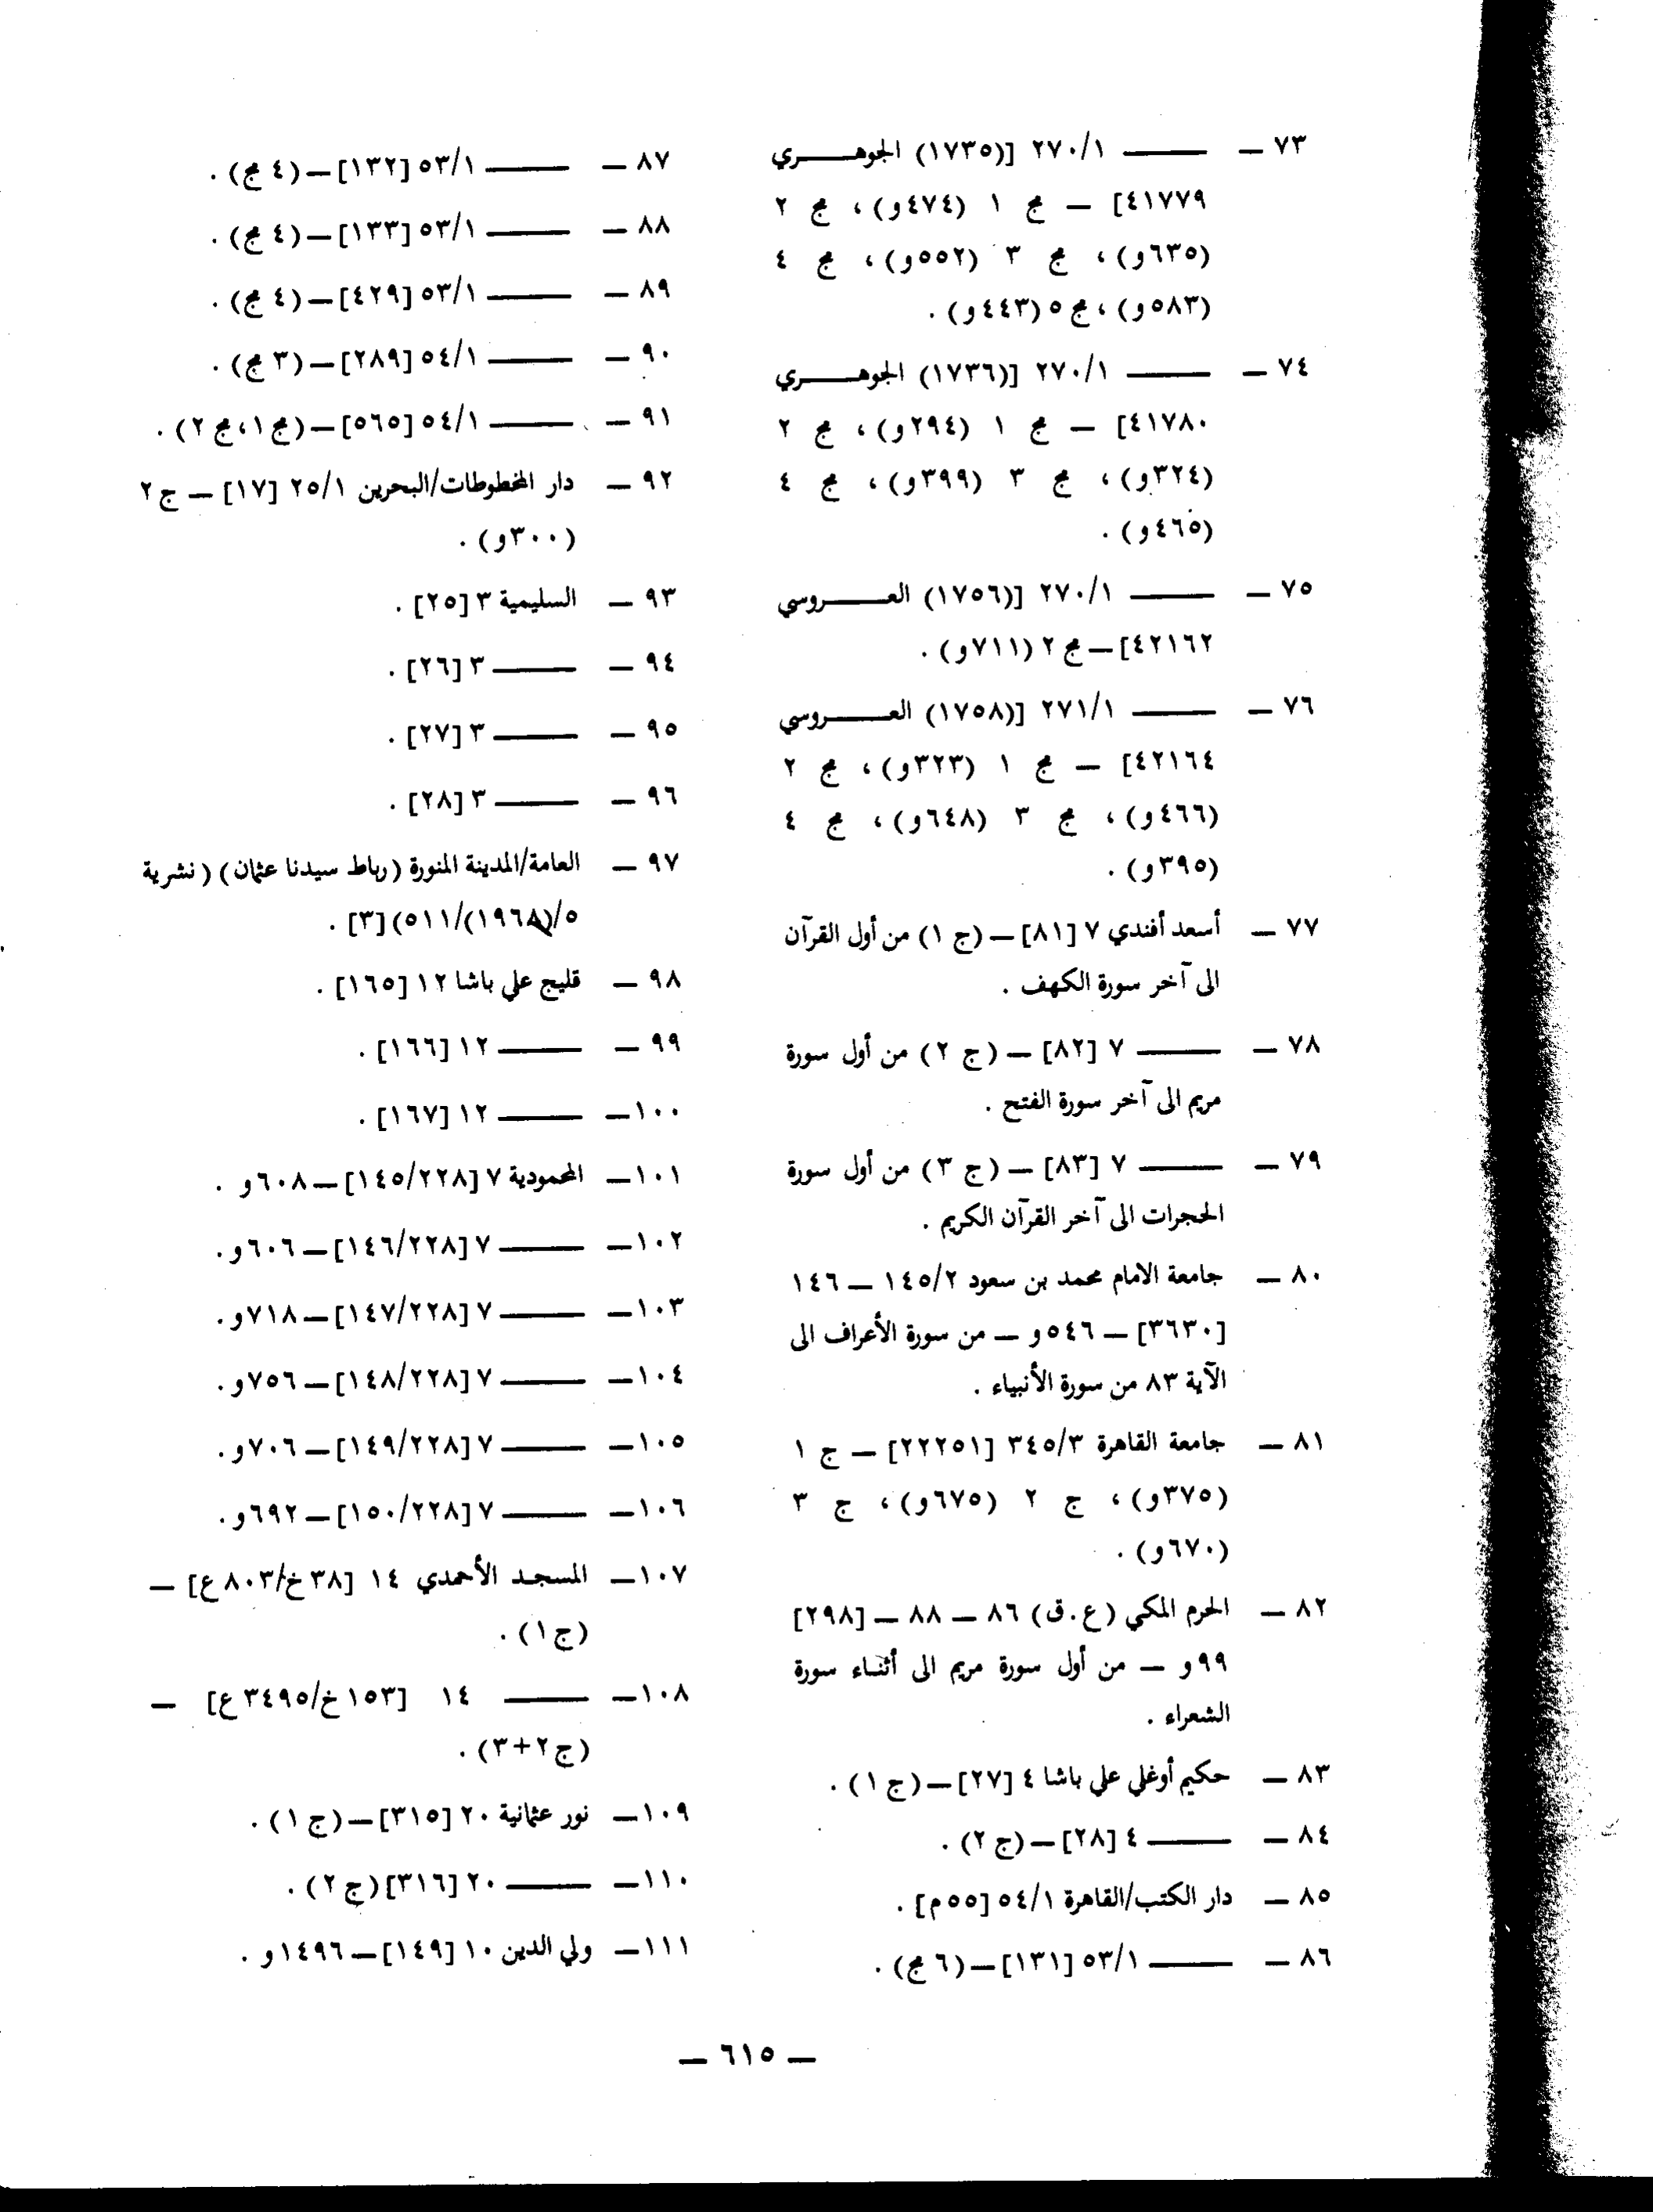 ٧٣ — ——— ٢٧٠/١ [(١٧٣٥) الجوهـــــري
٤١٧٧٩] — مج ١ (٤٧٤و)، مج ٢
(٦٣٥و)، مج ٣ (٥٥٢و)، مج ٤
(٥٨٣و)، مج ٥ (٤٤٣و).
٧٤ — ——— ٢٧٠/١ [(١٧٣٦) الجوهـــــري
٤١٧٨٠] — مج ١ (٢٩٤و)، مج ٢
(٣٢٤و)، مج ٣ (٣٩٩و)، مج ٤
(٤٦٥و).
٧٥ — ——— ٢٧٠/١ [(١٧٥٦) العـــــروسي
٤٢١٦٢] — مج ٢ (٧١١و).
٧٦ — ——— ٢٧١/١ [(١٧٥٨) العـــــروسي
٤٢١٦٤] — مج ١ (٣٢٣و)، مج ٢
(٤٦٦و)، مج ٣ (٦٤٨و)، مج ٤
(٣٩٥و).
٧٧ — أسعد أفندي ٧ [٨١] — (ج ١) من أول القرآن
الى آخر سورة الكهف.
٧٨ — ——— ٧ [٨٢] — (ج ٢) من أول سورة
مريم الى آخر سورة الفتح.
٧٩ — ——— ٧ [٨٣] — (ج ٣) من أول سورة
الحجرات الى آخر القرآن الكريم.
٨٠ — جامعة الامام محمد بن سعود ١٤٥/٢ — ١٤٦
[٣٦٣٠] — ٥٤٦و — من سورة الأعراف الى
الآية ٨٣ من سورة الأنبياء.
٨١ — جامعة القاهرة ٣٤٥/٣ [٢٢٢٥١] — ج ١
(٣٧٥و)، ج ٢ (٦٧٥و)، ج ٣
(٦٧٠و).
٨٢ — الحرم المكي (ع.ق) ٨٦ — ٨٨ — [٢٩٨]
٩٩و — من أول سورة مريم الى أثناء سورة
الشعراء.
٨٣ — حكيم أوغلي علي باشا ٤ [٢٧] — (ج ١).
٨٤ — ——— ٤ [٢٨] — (ج ٢).
٨٥ — دار الكتب/القاهرة ٥٤/١ [٥٥م].
٨٦ — ——— ٥٣/١ [١٣١] — (٦ مج).
٨٧ — ——— ٥٣/١ [١٣٢] — (٤ مج).
٨٨ — ——— ٥٣/١ [١٣٣] — (٤ مج).
٨٩ — ——— ٥٣/١ [٤٢٩] — (٤ مج).
٩٠ — ——— ٥٤/١ [٢٨٩] — (٣ مج).
٩١ — ——— ٥٤/١ [٥٦٥] — (مج ١، مج ٢).
٩٢ — دار المخطوطات/البحرين ٢٥/١ [١٧] — ج ٢
(٣٠٠و).
٩٣ — السليمية ٣ [٢٥].
٩٤ — ——— ٣ [٢٦].
٩٥ — ——— ٣ [٢٧].
٩٦ — ——— ٣ [٢٨].
٩٧ — العامة/المدينة المنورة (رباط سيدنا عثمان) (نشرية
٥/(١٩٦٨)/٥١١) [٣].
٩٨ — قليج علي باشا ١٢ [١٦٥].
٩٩ — ——— ١٢ [١٦٦].
١٠٠— ——— ١٢ [١٦٧].
١٠١— المحمودية ٧ [١٤٥/٢٢٨] — ٦٠٨و.
١٠٢— ——— ٧ [١٤٦/٢٢٨] — ٦٠٦و.
١٠٣— ——— ٧ [١٤٧/٢٢٨] — ٧١٨و.
١٠٤— ——— ٧ [١٤٨/٢٢٨] — ٧٥٦و.
١٠٥— ——— ٧ [١٤٩/٢٢٨] — ٧٠٦و.
١٠٦— ——— ٧ [١٥٠/٢٢٨] — ٦٩٢و.
١٠٧— المسجد الأحمدي ١٤ [٣٨خ/٨٠٣ع] —
(ج ١).
١٠٨— ——— ١٤ [١٥٣خ/٣٤٩٥ع] —
(ج ٢+٣).
١٠٩— نور عثمانية ٢٠ [٣١٥] — (ج ١).
١١٠— ——— ٢٠ [٣١٦] (ج ٢).
١١١— ولي الدين ١٠ [١٤٩] — ١٤٩٦و.
— ٦١٥ —